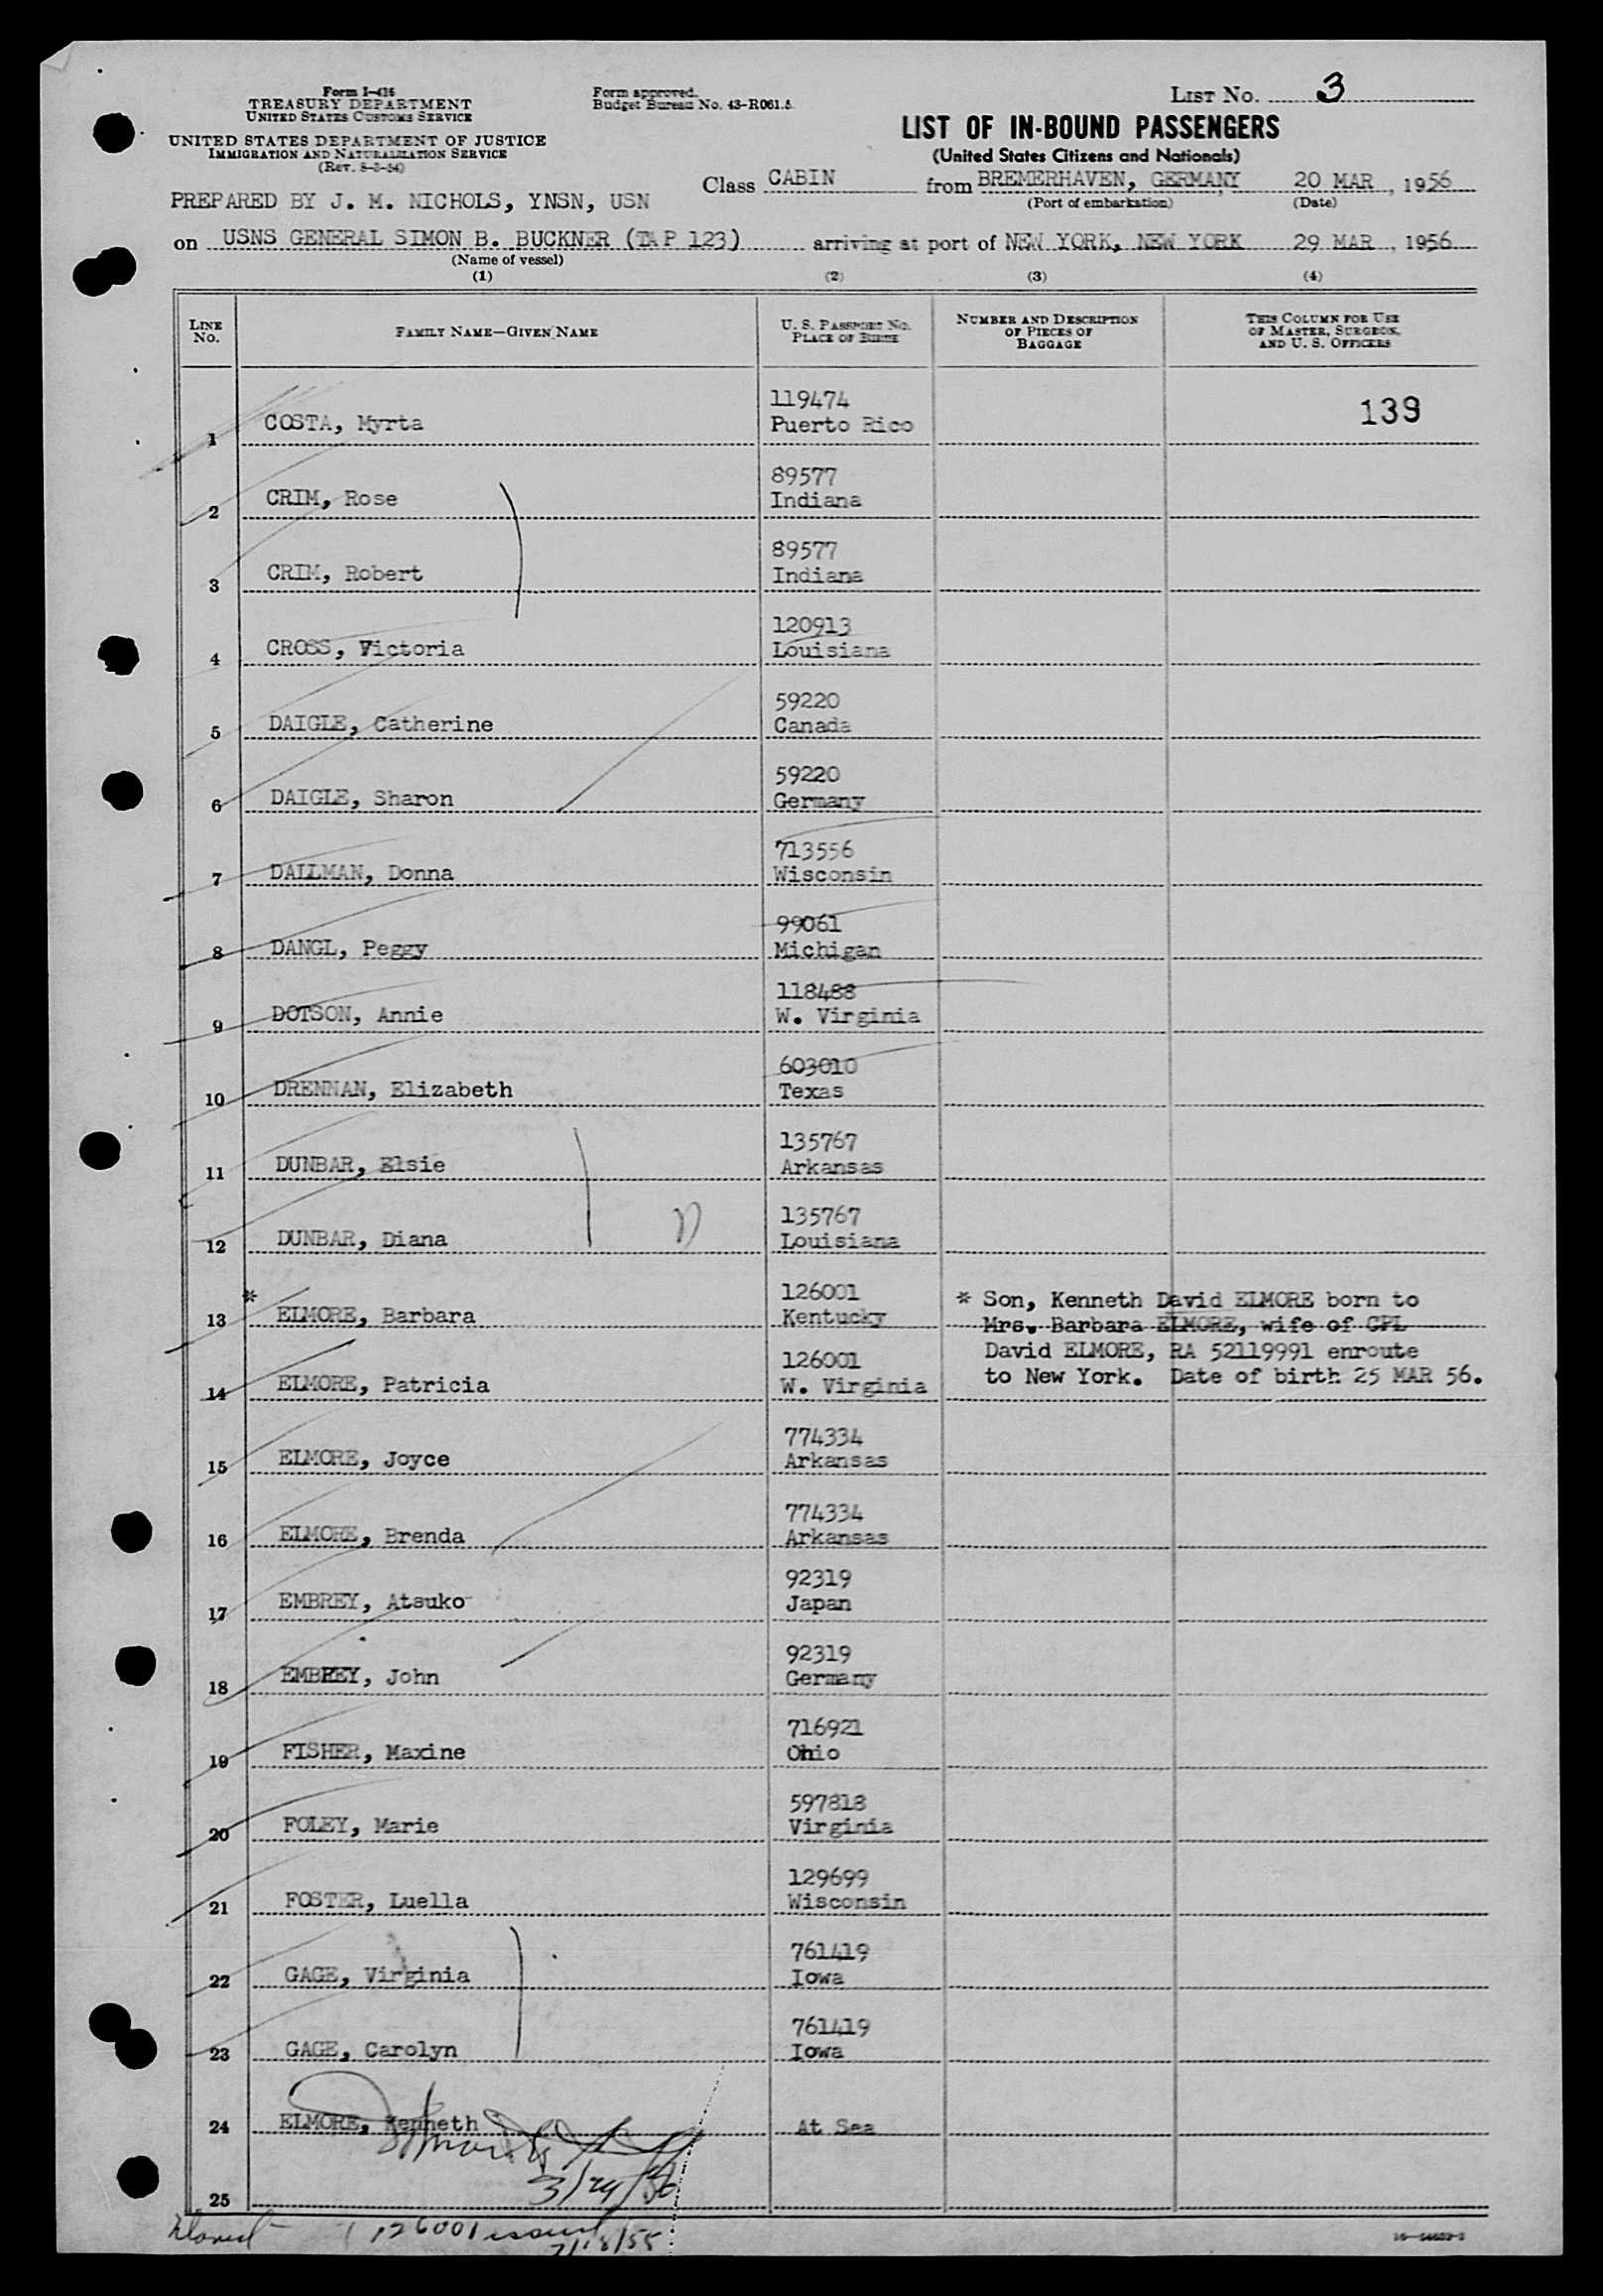 Form I-416
TREASURY DEPARTMENT
UNITED STATES CUSTOMS SERVICE
UNITED STATES DEPARTMENT OF JUSTICE
IMMIGRATION AND NATURALIZATION SERVICE
Form approved.
Budget Bureau No. 43-R061.5
LIST No. 3
LIST OF IN-BOUND PASSENGERS
(United States Citizens and Nationals)
Class CABIN from BREMERHAVEN, GERMANY 20 MAR, 1956
(Port of embarkation) (Date)
PREPARED BY J. M. NICHOLS, YNSN, USN
on USNS GENERAL SIMON B. BUCKNER (TAP 123) arriving at port of NEW YORK, NEW YORK 29 MAR, 1956
(Name of vessel)
(1) (2) (3) (4)
LINE NO. FAMILY NAME—GIVEN NAME U. S. PASSPORT NO. PLACE OF BIRTH NUMBER AND DESCRIPTION OF PIECES OF BAGGAGE THIS COLUMN FOR USE OF MASTER, SURGEON, AND U. S. OFFICERS
119474 139
1 COSTA, Myrta Puerto Rico
89577
2 CRIM, Rose Indiana
89577
3 CRIM, Robert Indiana
120913
4 CROSS, Victoria Louisiana
59220
5 DAIGLE, Catherine Canada
59220
6 DAIGLE, Sharon Germany
713556
7 DALLMAN, Donna Wisconsin
99061
8 DANGL, Peggy Michigan
118488
9 DOTSON, Annie W. Virginia
603010
10 DRENNAN, Elizabeth Texas
135767
11 DUNBAR, Elsie Arkansas
135767
12 DUNBAR, Diana Louisiana
126001 * Son, Kenneth David ELMORE born to
13 * ELMORE, Barbara Kentucky Mrs. Barbara ELMORE, wife of CPL
126001 David ELMORE, RA 52119991 enroute
14 ELMORE, Patricia W. Virginia to New York. Date of birth 25 MAR 56.
774334
15 ELMORE, Joyce Arkansas
774334
16 ELMORE, Brenda Arkansas
92319
17 EMBREY, Atsuko Japan
92319
18 EMBREY, John Germany
716921
19 FISHER, Maxine Ohio
597818
20 FOLEY, Marie Virginia
129699
21 FOSTER, Luella Wisconsin
761419
22 GAGE, Virginia Iowa
761419
23 GAGE, Carolyn Iowa
24 ELMORE, Kenneth At Sea
25
126001 issued